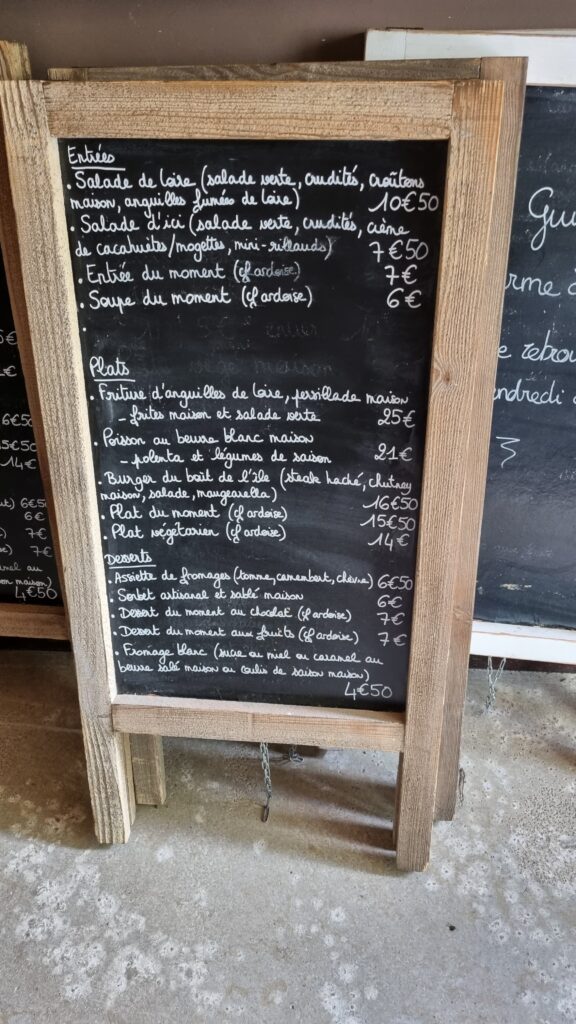 Entrées
. Salade de Loire (salade verte, crudités, croûtons
maison, anguilles fumées de Loire) 10€50
. Salade d'ici (salade verte, crudités, crème
de cacahuètes/mogettes, mini-rillauds) 7€50
. Entrée du moment (cf ardoise) 7€
. Soupe du moment (cf ardoise) 6€
.
Plats
. Friture d'anguilles de Loire, persillade maison
- frites maison et salade verte 25€
. Poisson au beurre blanc maison
- polenta et légumes de saison 21€
. Burger du boût de l'île (steak haché, chutney
maison, salade, maugearella) 16€50
. Plat du moment (cf ardoise) 15€50
. Plat végétarien (cf ardoise) 14€
Desserts
. Assiette de fromages (tomme, camembert, chèvre) 6€50
. Sorbet artisanal et sablé maison 6€
. Dessert du moment au chocolat (cf ardoise) 7€
. Dessert du moment aux fruits (cf ardoise) 7€
. Fromage blanc (sucre ou miel ou caramel au
beurre salé maison ou coulis de saison maison)
4€50
6€50
15€50
14€
6€50
6€
7€
7€
4€50
Gui
rme
e rebrou
endredi
3